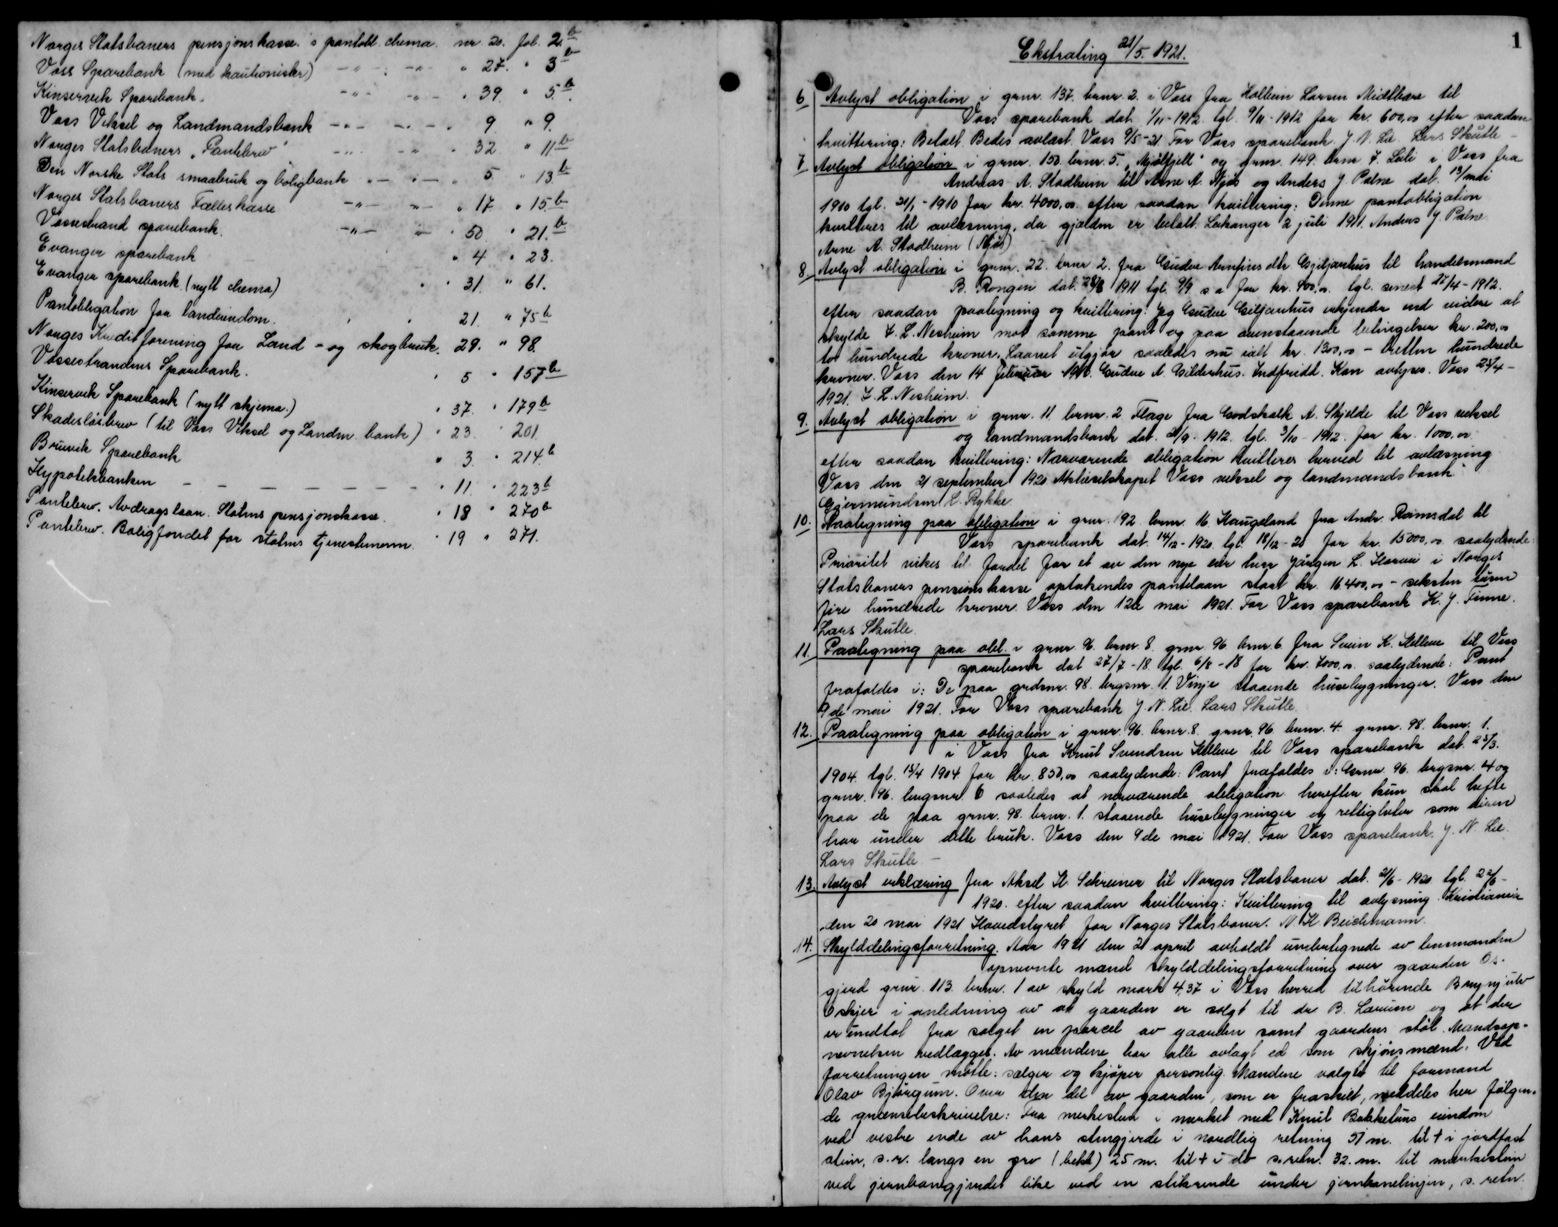 Norges Statsbaners pensjonskasse's pantobl. chema nr. 20. fol. 2b
Voss Sparebank (med kautionister) -"- -"- " 27. " 3b
Kinservik Sparebank. -"- -"- " 39. " 5b
Voss Veksel og Landmandsbank -"- -"- " 9 " 9.
Norges Statsbaners "Pantebrev" -"- -"- " 32. " 11b
Den Norske Stats smaabruk og boligbank -"- -"- " 5 " 13b
Norges Statsbaners Fælleskasse -"- -"- " 17 " 15b
Vossestrand sparebank. -"- -"- " 50 " 21b
Evanger sparebank " 4 " 23.
Evanger sparebank (nytt chema) " 31. " 61.
Pantobligation for landeiendom. " 21. " 75b
Norges Kreditforening for Land- og skogbruk. 29. " 98.
Vossestrandens Sparebank. " 5 " 157b
Kinservik Sparebank (nytt skjema.) " 37. " 179b
Skadesløsbrev (til Voss Veksel og Landm. bank) " 23. " 201
Bruvik Sparebank " 3. " 214b
Hypotekbanken - - - - - " 11. " 223b
Pantebrev. Avdragslaan. Statens pensjonskasse. " 18 " 270b
Pantebrev. Boligfondet for statens tjenestmenn. " 19 " 271.
1
Ekstrating 21/5. 1921.
6. Avlyst obligation i grnr. 137. brnr. 2. i Voss fra Larsen til
Voss sparebank dat. 1/11-1912. tgl. 9/11-1912 for kr. 600,00 efter saadan
kvittering: Betalt. Bedes avlæst. Voss 9/5-21. For Voss sparebank J. N. Lie Lars Skutle -
7. Avlyst obligation i grnr. 150. brnr. 5. "Mjølfjell" og grnr. 149. brnr. 7. i Voss fra
Andreas A. Stadheim til Arne A. og Anders J. Palne dat. 13/mai
1910 tgl. 21/-1910 for kr. 4000,00 efter saadan kvittering: Denne pantobligation
kvitteres til avlæsning, da gjælden er betalt. Leikanger 2 juli 1911. Anders J. Palne
Arne A. Stadheim
8. Avlyst obligation i grnr. 22. brnr. 2. fra Gudve Arnfinsdtr. Giljarhus til handelsmand
B. Rongen dat. 1911 tgl. s. a. for kr. 900,00. tgl. senest /4-1912.
efter saadan paategning og kvittering: Jeg Gudve erkjender ved videre at
skylde L. Nesheim mot samme pant og paa ovenstaaende betingelser kr. 200,00
to hundrede kroner. Laanet utgjør saaledes nu ialt kr. 1300,00 - tretten hundrede
kroner. Voss den 14 februar Gudve A. Gilderhus. Indfridd. Kan avlyses. Voss 23/4-
1921. L. Nesheim.
9. Avlyst obligation i grnr. 11 brnr. 2 Flage fra Godskalk A. Skjelde til Voss veksel
og landmandsbank dat. /9-1912. tgl. 3/10-1912. for kr. 1000,00
efter saadan kvittering: Nærværende obligation kvitteres herved til avlæsning
Voss den 21 september 1920 Aktieselskapet Voss veksel og landmandsbank
Gjermundsen L. Rykke
10. Paategning paa obligation i grnr. 192. brnr. 16 Haugeland fra Andr. Ramsdal til
Voss sparebank dat. 14/12-1920. tgl. 18/12-20 for kr. 15000,00 saalydende:
Prioritet vikes til fordel for et av den nye eier herr Jørgen L. i Norges
Statsbaners pensionskasse optakendes pantelaan stort kr. 16400,00 - seksten tusen
fire hundrede kroner. Voss den 12te mai 1921. For Voss sparebank K. J. Finne.
Lars Skutle.
11. Paategning paa obl. i grnr. 9. brnr. 8. grnr. 96. brnr. 6. fra Svein K. til Voss
sparebank dat 27/7-18. tgl. 6/8-18 for kr. 7000,00. saalydende: Pant
frafaldes i: De paa grdsnr. 98. brgsnr. 1. Vinje staaende husebygninger. Voss den
9de mai 1921. For Voss sparebank J. N. Lie. Lars Skutle.
12. Paategning paa obligation i grnr. 96. brnr. 8. grnr. 96. brnr. 4. grnr. 98. brnr. 1.
i Voss fra Knut Svendsen til Voss sparebank dat. 23/3.
1904. tgl. 13/4 1904 for kr. 850,00 saalydende: Pant frafaldes i: Grnr. 96. brgsnr. 4 og
grnr. 96. brugsnr. 6 saaledes at nærværende obligation herefter kun skal hefte
paa de paa grnr. 98. brnr. 1. staaende husebygninger og rettigheter som eieren
har under dette bruk. Voss den 9de mai 1921. For Voss sparebank. J. N. Lie.
Lars Skutle -
13. Avlyst erklæring fra Aksel H. Schreiner til Norges Statsbaner dat. 2/6-1920 tgl. 22/6-
1920. efter saadan kvittering: Kvittering til avlysning. Kristiania
den 20 mai 1921 Hovedstyret for Norges Statsbaner. Beichmann.
14. Skylddelingsforretning. Aar 1921 den 21 april avholdt undertegnede av lensmanden
opnevnte mænd skylddelingsforretning over gaarden Os-
gjerd grnr. 113. brnr. 1 av skyld mark 4,37 i Voss herred tilhørende Brynjulv
i anledning av at gaarden er solgt til dr. B. Larsen og at der
er undtat fra salget en parcel av gaarden samt gaardens støl. Mandsop-
nevnelsen vedlægges. Av mændene har alle avlagt ed som skjønsmænd. Ved
forretningen møtte: sælger og kjøper personlig. Mændene valgte til formand
Olav Bjørgum. Over den del av gaarden, som er fraskilt, meddeles her følgen-
de grænsebeskrivelse: Fra merkesten i merket med Knut Bakketuns eiendom
ved vestre ende av hans stengjerde i nordlig retning 51 m. til + i jordfast
sten, s. r. langs en grov (bekk) 25 m. til + i do s. retn. 32. m. til merkesten
ved jernbanegjerdet like ved en stikrende under jernbanelinjen, s. retn.